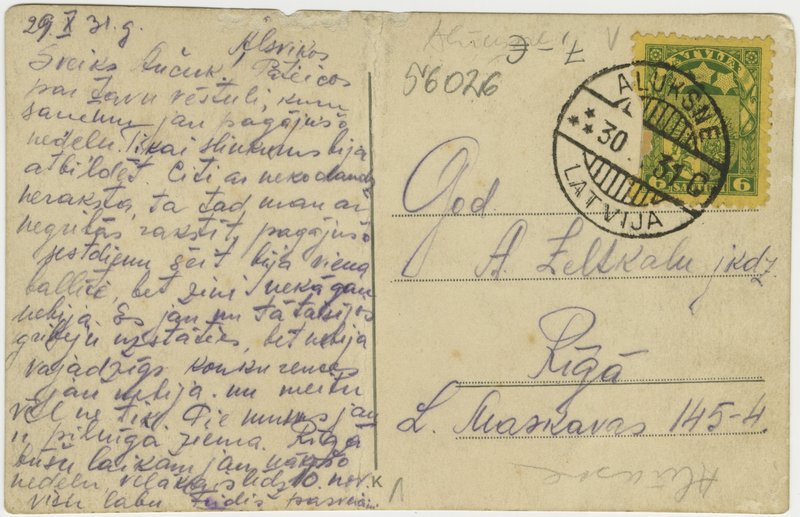 29 X 31. g.
Alsviķos
Sveiks Pateicos
par tavu vēstuli, kuru
saņēmu jau pagājušo
nedēļu. Tikai slinkums bija
atbildēt. Citi ar neko daudz
neraksta, tā tad man ar
negribās rakstīt, pagājušo
sestdienu šeit bija viena
ballīte, bet ziņi nekā gan
nebija, Es jau nu tā
gribēju uzstāties, bet nebija
vajadzīgs konkurences
jau nebija. nu meitu
vēl ne tik. Pie mums jau
ir pilnīga ziema. Rīgā
būšu laikam jau nākošo
nedēļu, vēlākais līdz 10. nov.
visu labu
K
56026
7-
V
LATVIJA
6
ALŪKSNE
30 31-8
LATVIJA
God
A. Zeltkaln jkdz
Rīgā
L. Maskavas 145-4.